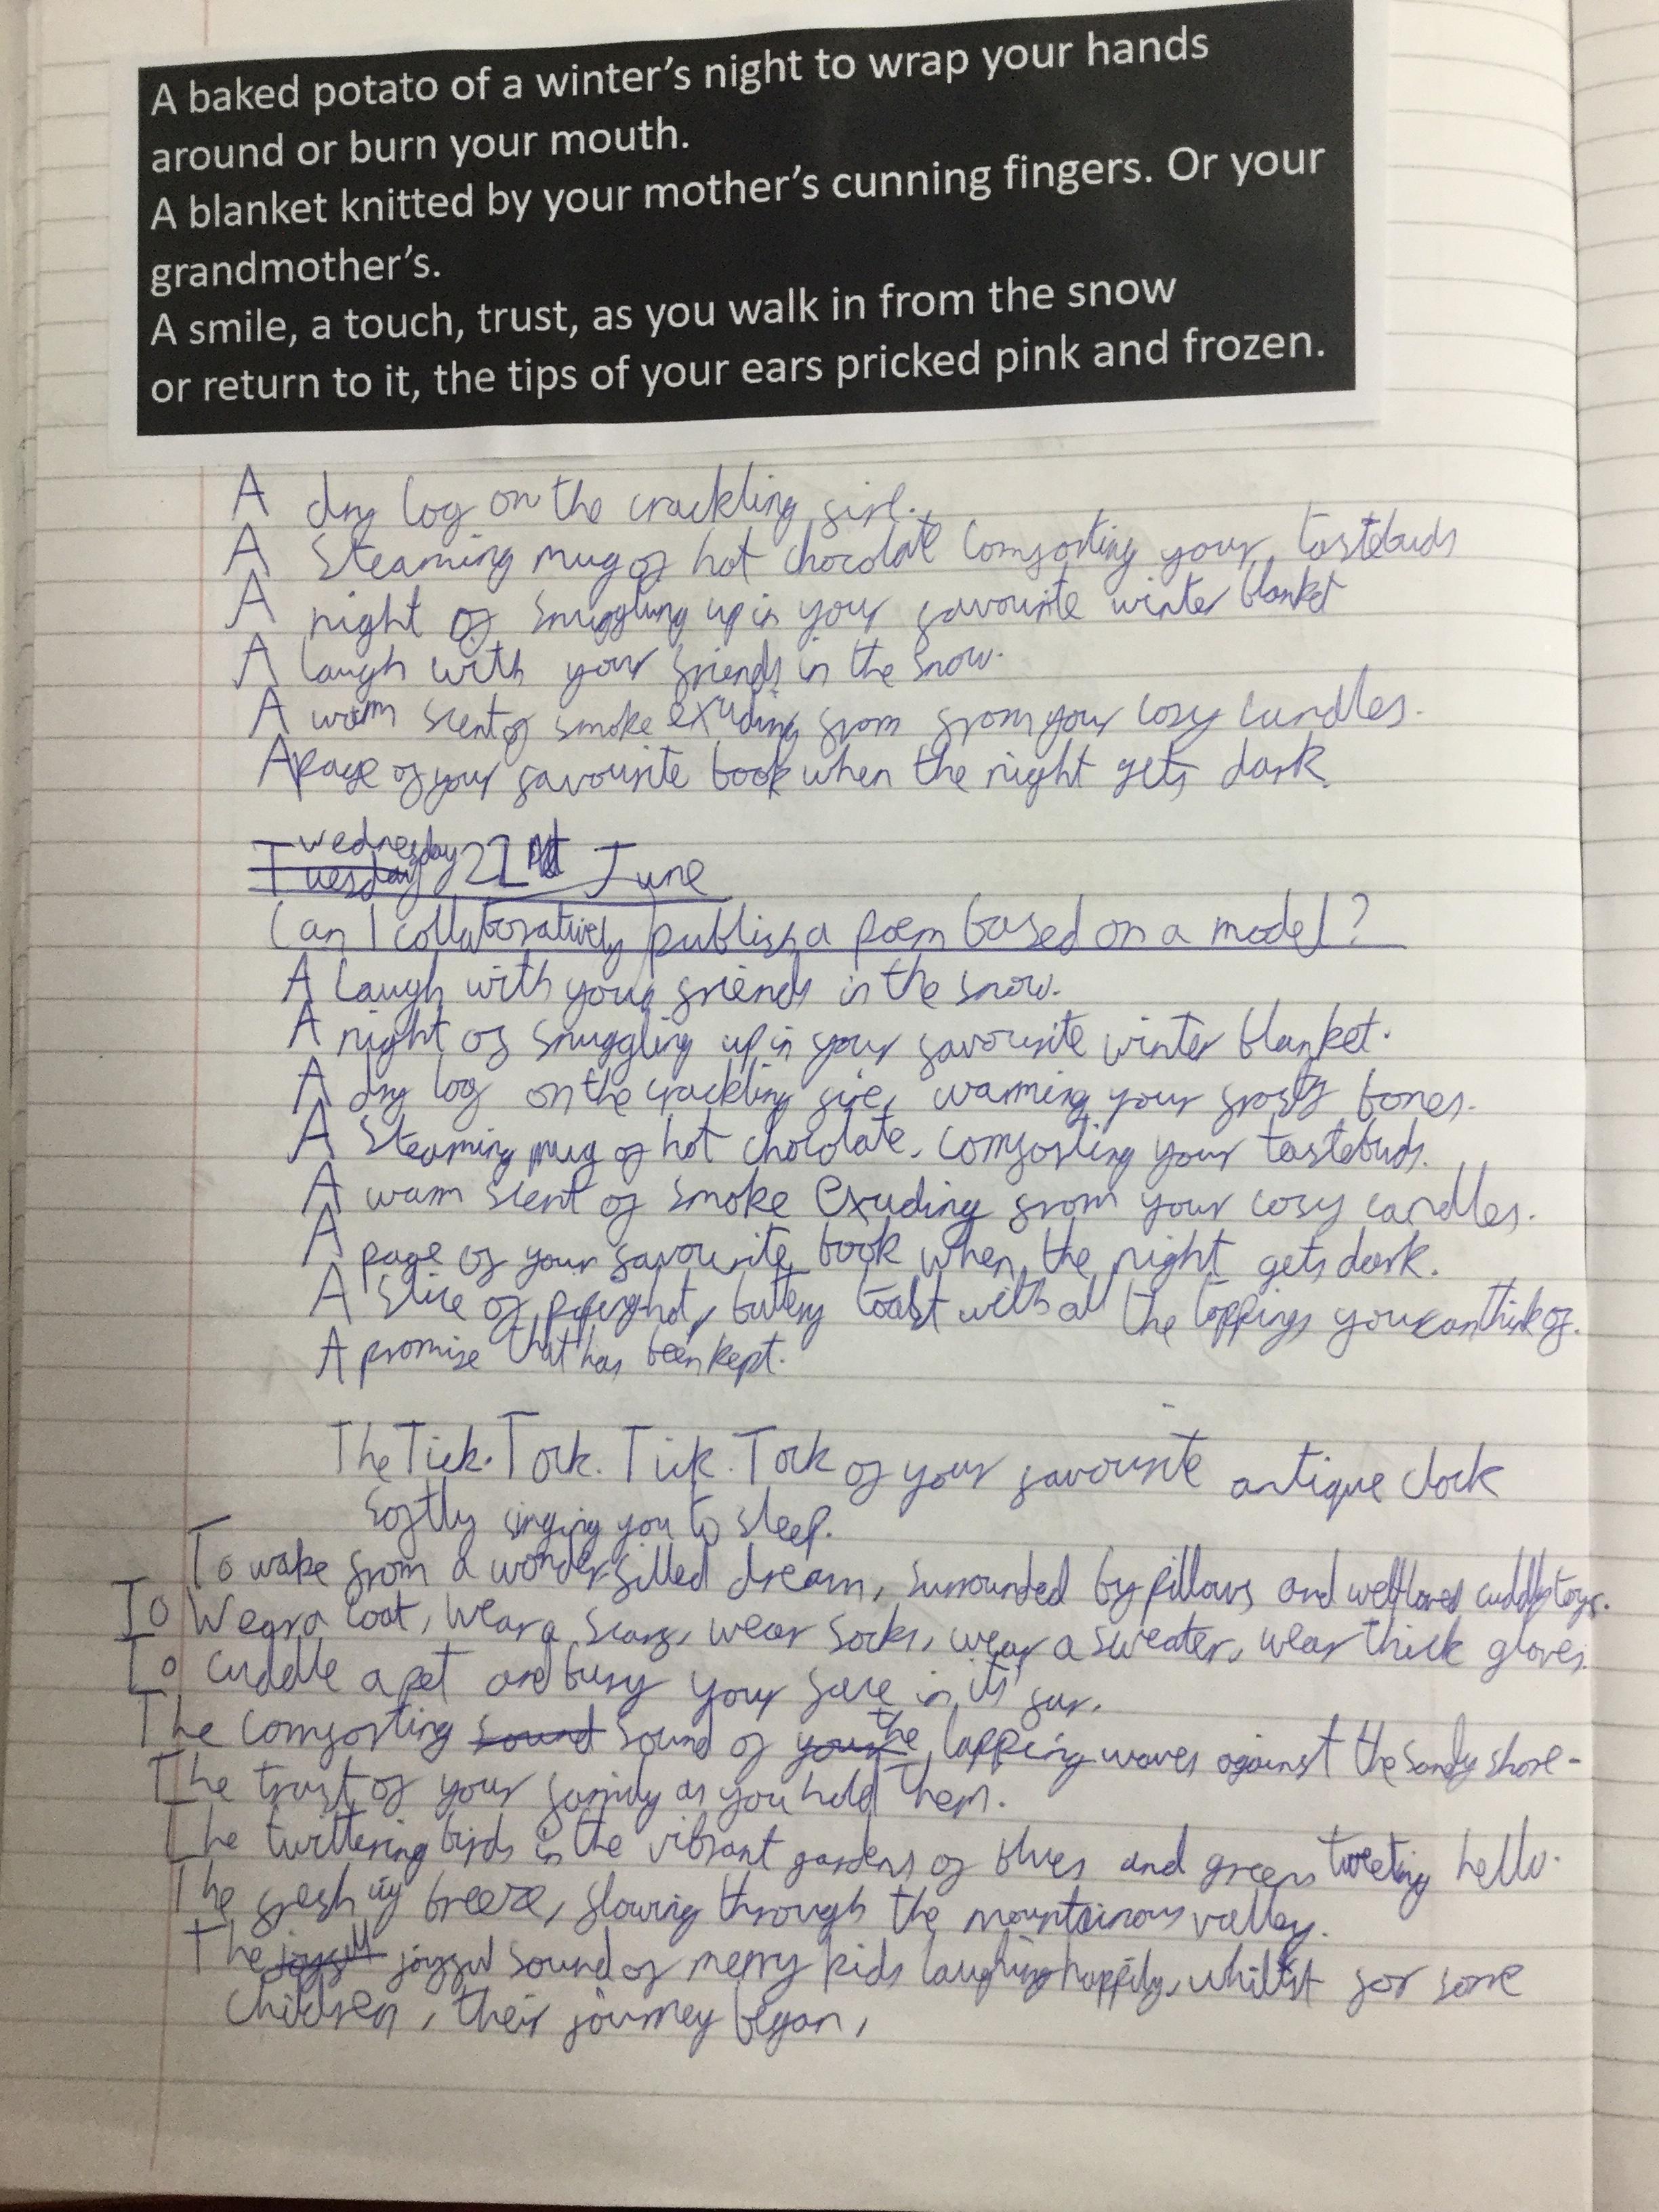 A baked potato of a winter's night to wrap your hands
around or burn your mouth.
A blanket knitted by your mother's cunning fingers. Or your
grandmother's.
A smile, a touch, trust, as you walk in from the snow
or return to it, the tips of your ears pricked pink and frozen.
A dry log on the crackling fire.
A steaming mug of hot chocolate comforting your tastebuds
A night of snuggling up in your favourite winter blanket
A laugh with your friends in the snow.
A warm scent of smoke exuding from from your cosy candles.
A page of your favourite book when the night gets dark
Wednesday
Tuesday 21st June
Can I collaboratively publish a poem based on a model?
A laugh with your friends in the snow.
A night of snuggling up in your favourite winter blanket.
A dry log on the crackling fire, warming your frosty bones.
A steaming mug of hot chocolate, comforting your tastebuds.
A warm scent of smoke exuding from your cosy candles.
A page of your favourite book when the night gets dark.
A slice of hot, buttery toast with all the toppings you can think of.
A promise that has been kept.
The Tick. Tock. Tick. Tock of your favourite antique clock
softly singing you to sleep.
To wake from a wonder-filled dream, surrounded by pillows and well loved cuddly toys.
To Wear a coat, wear a scarf, wear socks, wear a sweater, wear thick gloves.
To cuddle a pet and bury your face in its' fur.
The comforting sound sound of your the lapping waves against the sandy shore-
The trust of your family as you hold them.
The twittering birds in the vibrant gardens of blues and greens tweeting hello.
The fresh icy breeze, flowing through the mountainous valley.
The joyfull joyful sound of merry kids laughing happily, whilst for some
children, their journey began,